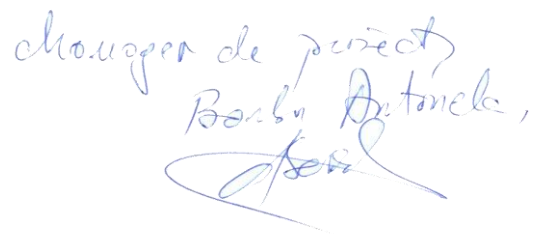 Manager de proiect,
Barbu Antonela,